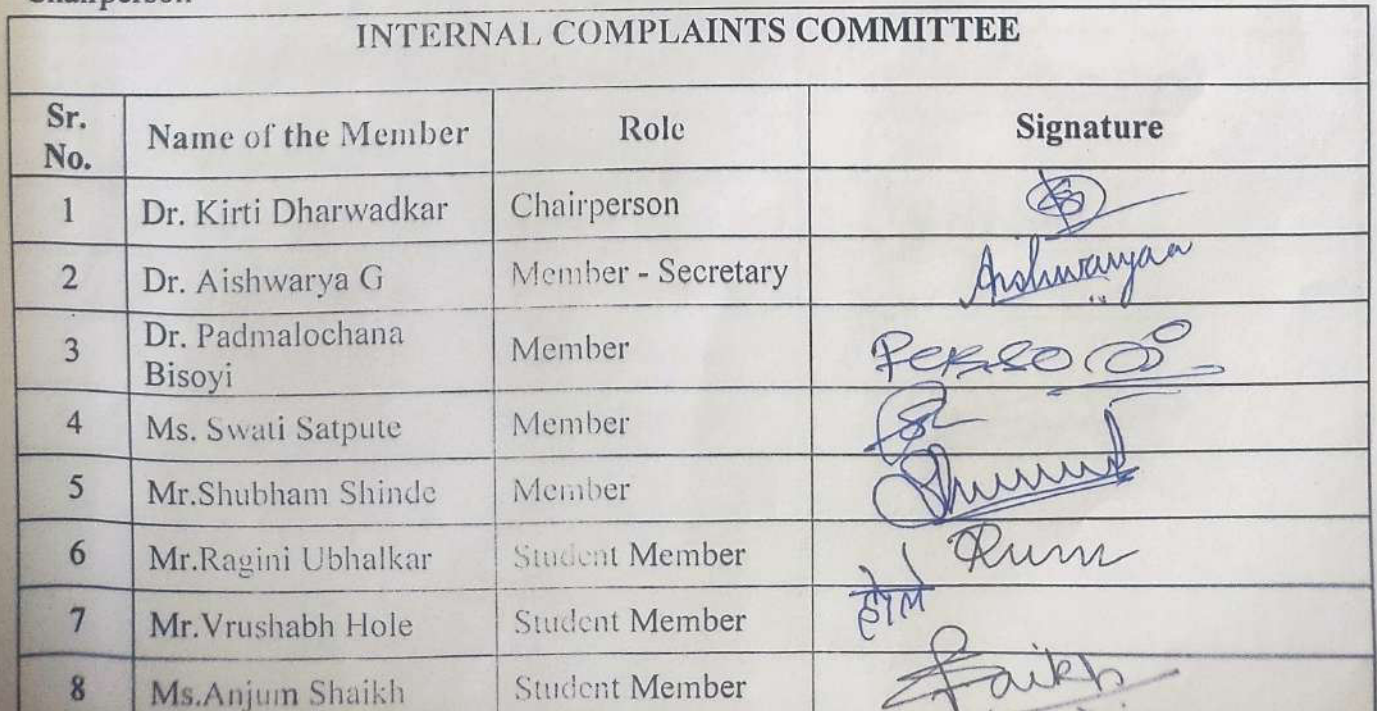 Chairperson
INTERNAL COMPLAINTS COMMITTEE
Sr. No. Name of the Member Role Signature
1 Dr. Kirti Dharwadkar Chairperson
2 Dr. Aishwarya G Member - Secretary Aishwaryaa
3 Dr. Padmalochana Bisoyi Member
4 Ms. Swati Satpute Member
5 Mr.Shubham Shinde Member
6 Mr.Ragini Ubhalkar Student Member
7 Mr.Vrushabh Hole Student Member होले
8 Ms.Anjum Shaikh Student Member Shaikh